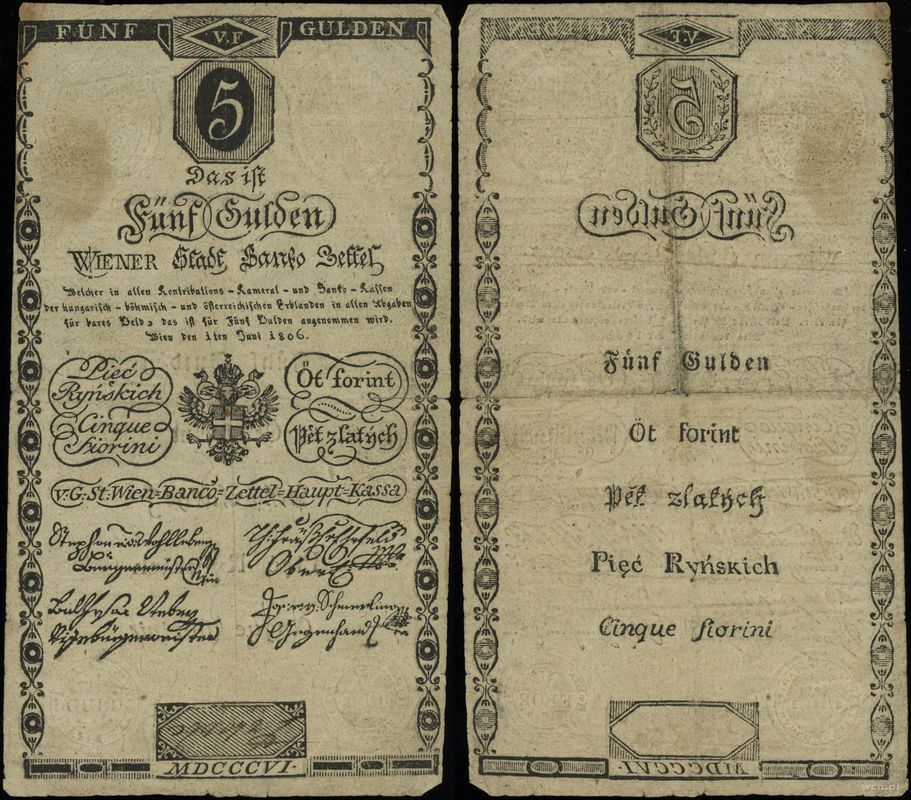 FÜNF V.F GULDEN
5
Das ist
Fünf Gulden
WIENER Stadt Banko Zettel
Welcher in allen Kontributions-Kameral-und Banko-Kassen
der hungarisch-böhmisch-und österreichischen Erblanden in allen Abgaben
für bares Geld, das ist für Fünf Gulden angenommen wird.
Wien den 1ten Juni 1806.
Pięć
Ryńskich
Cinque
fiorini
Öt forint
Pět zlatých
v. G. St. Wien=Banco=Zettel=Haupt=Kassa
Stephan
Bürgermeister
Vizebürgermeister
MDCCCVI.
V.F
5
Fünf Gulden
Fünf Gulden
Öt forint
Pět zlatých
Pięć Ryńskich
Cinque fiorini
MDCCCVI.
wcn.pl